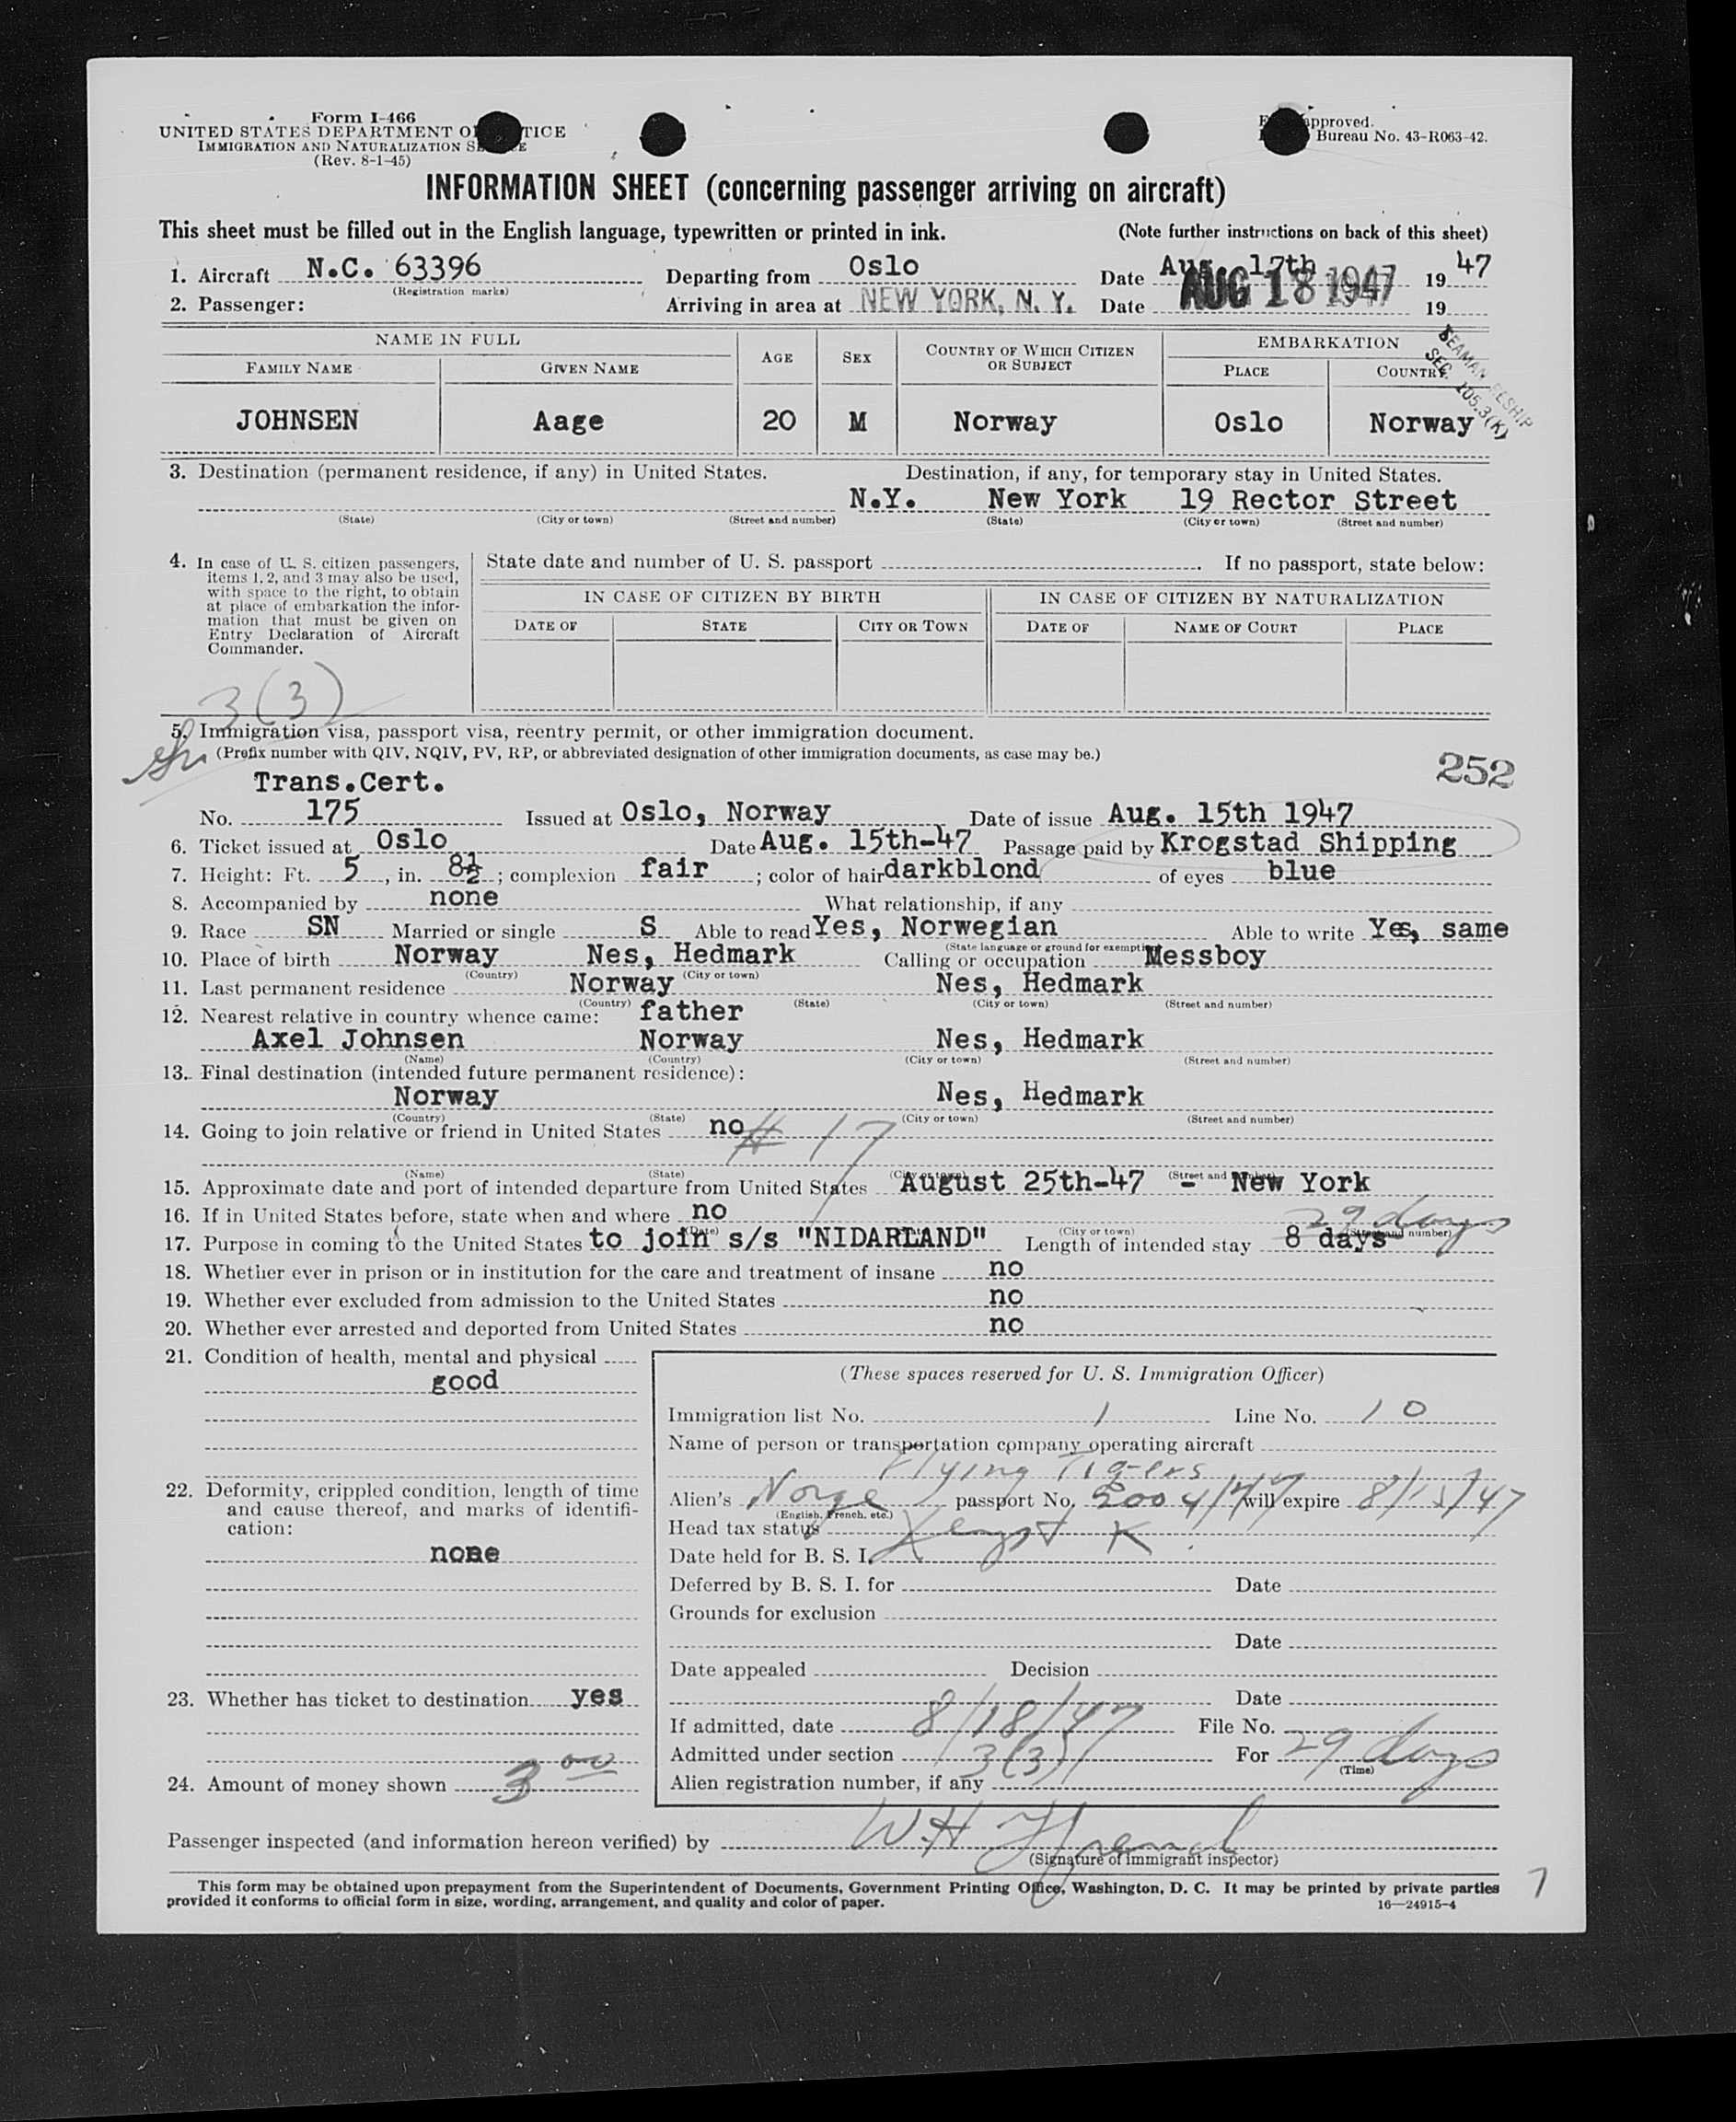 Form I-466
UNITED STATES DEPARTMENT OF TICE
IMMIGRATION AND NATURALIZATION SE E
(Rev. 8-1-45)
approved.
Bureau No. 43-R063-42.
INFORMATION SHEET (concerning passenger arriving on aircraft)
This sheet must be filled out in the English language, typewritten or printed in ink. (Note further instructions on back of this sheet)
1. Aircraft N.C. 63396 Departing from Oslo Date Aug. 17th 1947
(Registration marks)
2. Passenger: Arriving in area at NEW YORK, N. Y. Date AUG 18 1947 19
SEAMAN RESHIP
SEC. 105.3(K)
NAME IN FULL AGE SEX COUNTRY OF WHICH CITIZEN OR SUBJECT EMBARKATION
FAMILY NAME GIVEN NAME PLACE COUNTRY
JOHNSEN Aage 20 M Norway Oslo Norway
3. Destination (permanent residence, if any) in United States. Destination, if any, for temporary stay in United States.
N.Y. New York 19 Rector Street
(State) (City or town) (Street and number) (State) (City or town) (Street and number)
4. In case of U. S. citizen passengers, items 1, 2, and 3 may also be used, with space to the right, to obtain at place of embarkation the information that must be given on Entry Declaration of Aircraft Commander.
State date and number of U. S. passport . If no passport, state below:
IN CASE OF CITIZEN BY BIRTH IN CASE OF CITIZEN BY NATURALIZATION
DATE OF STATE CITY OR TOWN DATE OF NAME OF COURT PLACE
3(3)
5. Immigration visa, passport visa, reentry permit, or other immigration document.
(Prefix number with QIV, NQIV, PV, RP, or abbreviated designation of other immigration documents, as case may be.)
252
Trans.Cert.
No. 175 Issued at Oslo, Norway Date of issue Aug. 15th 1947
6. Ticket issued at Oslo Date Aug. 15th-47 Passage paid by Krogstad Shipping
7. Height: Ft. 5, in. 8½; complexion fair; color of hair darkblond of eyes blue
8. Accompanied by none What relationship, if any
9. Race SN Married or single S Able to read Yes, Norwegian Able to write Yes, same
(State language or ground for exemption)
10. Place of birth Norway Nes, Hedmark Calling or occupation Messboy
(Country) (City or town)
11. Last permanent residence Norway Nes, Hedmark
(Country) (State) (City or town) (Street and number)
12. Nearest relative in country whence came: father
Axel Johnsen Norway Nes, Hedmark
(Name) (Country) (City or town) (Street and number)
13. Final destination (intended future permanent residence):
Norway Nes, Hedmark
(Country) (State) (City or town) (Street and number)
14. Going to join relative or friend in United States no # 17
(Name) (State) (City or town) (Street and number)
15. Approximate date and port of intended departure from United States August 25th-47 - New York
16. If in United States before, state when and where no
(Date) (City or town) (Street and number)
29 days
17. Purpose in coming to the United States to join s/s "NIDARLAND" Length of intended stay 8 days
18. Whether ever in prison or in institution for the care and treatment of insane no
19. Whether ever excluded from admission to the United States no
20. Whether ever arrested and deported from United States no
21. Condition of health, mental and physical
good
22. Deformity, crippled condition, length of time and cause thereof, and marks of identification:
none
23. Whether has ticket to destination yes
24. Amount of money shown 3 00
(These spaces reserved for U. S. Immigration Officer)
Immigration list No. 1 Line No. 10
Name of person or transportation company operating aircraft
Flying Tigers
Alien's Norge passport No. will expire
(English, French, etc.)
Head tax status
Date held for B. S. I.
Deferred by B. S. I. for Date
Grounds for exclusion
Date
Date appealed Decision
Date
If admitted, date 8/18/47 File No.
Admitted under section 3(3) For 29 days
(Time)
Alien registration number, if any
Passenger inspected (and information hereon verified) by W.H.
(Signature of immigrant inspector)
This form may be obtained upon prepayment from the Superintendent of Documents, Government Printing Office, Washington, D. C. It may be printed by private parties
provided it conforms to official form in size, wording, arrangement, and quality and color of paper. 16—24915-4